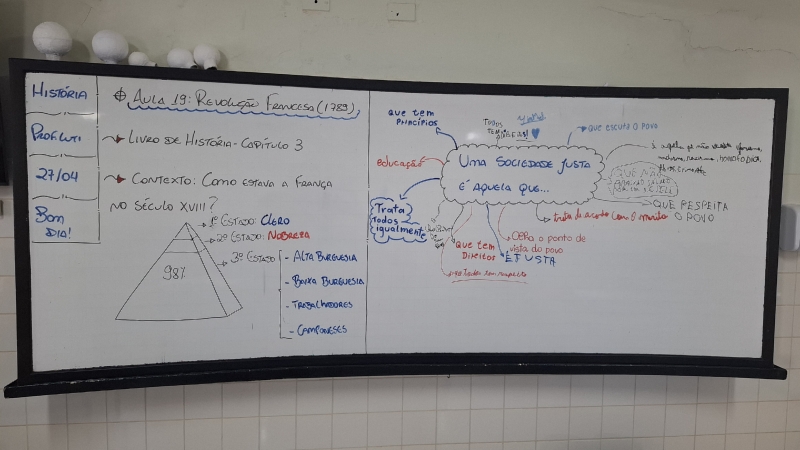 HISTÓRIA
PROF. LUTI
27/04
BOM
DIA!
AULA 19: REVOLUÇÃO FRANCESA (1789)
LIVRO DE HISTÓRIA - CAPÍTULO 3
CONTEXTO: COMO ESTAVA A FRANÇA
NO SÉCULO XVIII?
1º ESTADO: CLERO
2º ESTADO: NOBREZA
3º ESTADO
- ALTA BURGUESIA
- BAIXA BURGUESIA
- TRABALHADORES
- CAMPONESES
98%
UMA SOCIEDADE JUSTA
É AQUELA QUE...
que tem
PRINCÍPIOS
TODOS
que escuta o povo
educação
Trata
Todos
igualmente
QUE TEM
DIREITOS
É JUSTA
olha o ponto de
vista do povo
QUE RESPEITA
O POVO